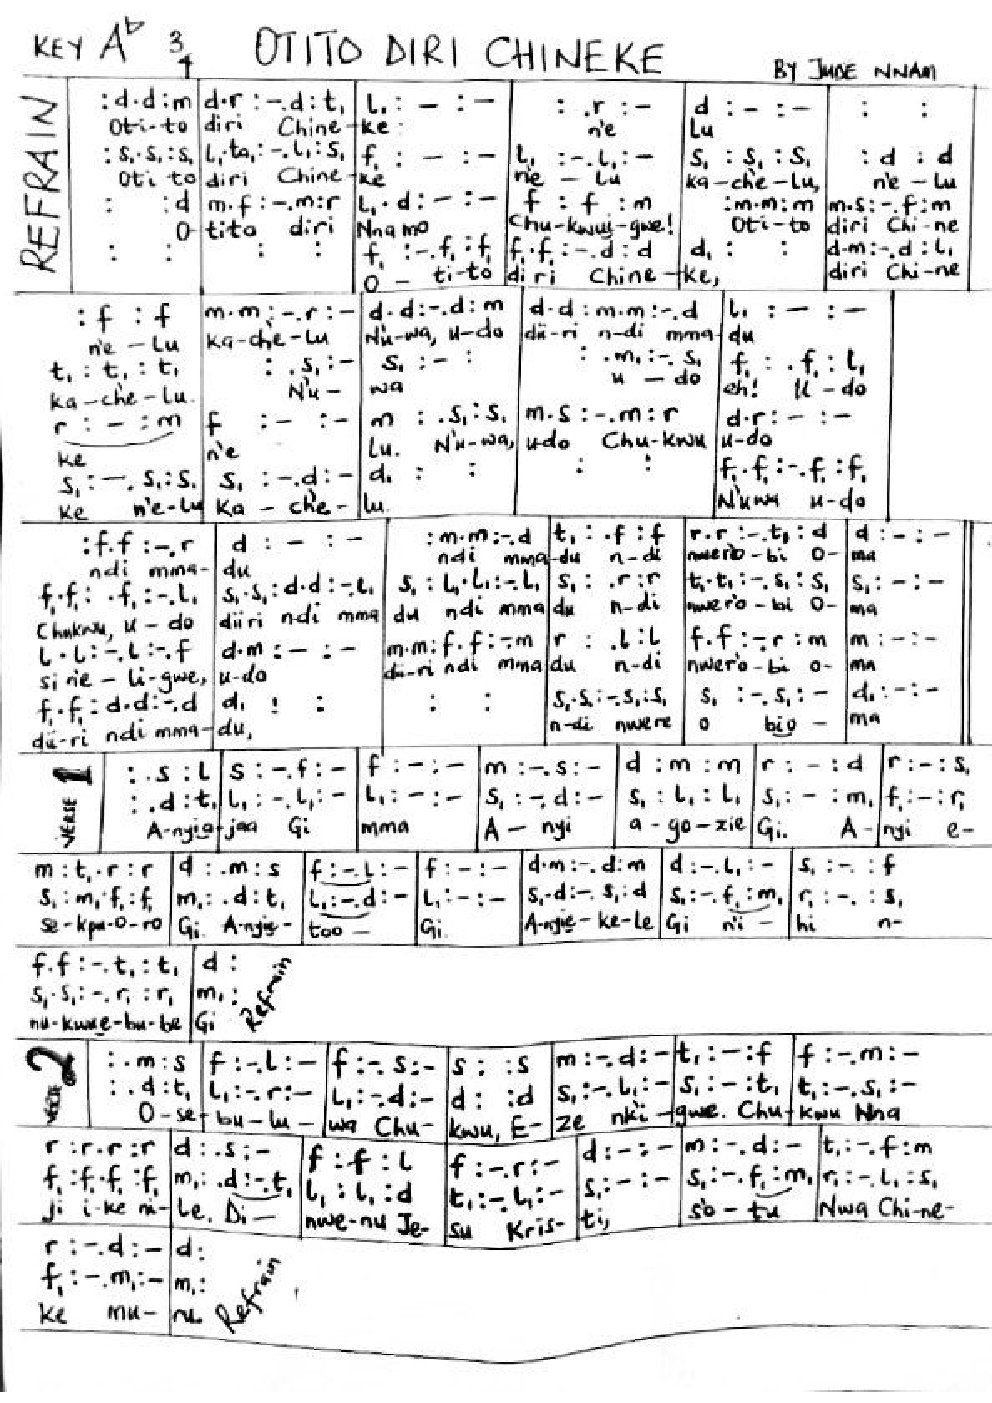 KEY A♭ 3/4 OTITO DIRI CHINEKE
BY JUDE NNAM
REFRAIN
:d.d:m | d.r:-.d:t, | l,:-:- | :.r:- | d:-:- | : :
Oti-to | diri Chine- | ke | n'e | Lu
:s,.s,:s, | l,.ta,:-.l,:s, | f,:-:- | l,:-.l,:- | s,:s,:s, | :d:d
Oti to | diri Chine- | ke | n'e-Lu | ka-che-Lu, | n'e-Lu
: :d | m.f:-.m:r | l,.d:-:- | f:f:m | :m.m:m | m.s:-.f:m
O- | tito diri | Nnamo | Chu-kwuj-gwe! | Oti-to | diri Chi-ne
: : | : : | f,:-.f,:f, | f,.f,:-.d:d | d,: : | d.m:-.d:l,
O-ti-to | diri Chine- | ke, | diri Chi-ne
:f:f | m.m:-.r:- | d.d:-.d:m | d.d:m.m:-.d | l,:-:-
n'e-Lu | ka-che-Lu | N'u-wa, u-do | dii-ri n-di mma- | du
t,:t,:t, | :.s,:- | s,:-: | :.m,:-.s, | f,:.f,:l,
ka-che-Lu. | N'u- | wa | u-do | eh! U-do
r:-:m | f:-:- | m:.s,:s, | m.s:-.m:r | d.r:-:-
ke | n'e | Lu. N'u-wa, | udo Chu-kwu | u-do
s,:-.s,:s, | s,:-.d:- | d,: : | : : | f,.f,:-.f,:f,
ke n'e-Lu | ka-che- | Lu. | N'uwa u-do
:f.f:-.r | d:-:- | :m.m:-.d | t,:.f:f | r.r:-.t,:d | d:-:-
ndi mma- | du | ndi mma- | du n-di | nwero-bi O- | ma
f,.f,:.f,:-.l, | s,.s,:d.d:-.l, | s,:l,.l,:-.l, | s,:.r:r | t,.t,:-.s,:s, | s,:-:-
Chukwu, u-do | diiri ndi mma | du ndi mma | du n-di | nwero-bi O- | ma
l.l:-.l:-.f | d.m:-:- | m.m:f.f:-.m | r:.l:l | f.f:-.r:m | m:-:-
si n'e-li-gwe, | u-do | dii-ri ndi mma | du n-di | nwero-bi o- | ma
f,.f,:d.d:-.d | d,: : | : : | s,.s,:-.s,:s, | s,:-.s,:- | d,:-:-
dii-ri ndi mma- | du, | n-di nwere | o bio- | ma
VERSE 1
:.s:l | s:-.f:- | f:-:- | m:-.s:- | d:m:m | r:-:d | r:-:s,
:.d:t, | l,:-.l,:- | l,:-:- | s,:-.d:- | s,:l,:l, | s,:-:m, | f,:-:r,
A-nyia- | jaa Gi | mma | A-nyi | a-go-zie | Gi. A- | nyi e-
m:t,.r:r | d:.m:s | f:-.l:- | f:-:- | d.m:-.d:m | d:-.l,:- | s,:-.:f
s,:m,.f,:f, | m,:.d:t, | l,:-.d:- | l,:-:- | s,.d:-.s,:d | s,:-.f,:m, | r,:-.:s,
se-kpu-o-ro | Gi. A-nyie- | too- | Gi. | A-nyie-ke-le | Gi n'i- | hi n-
f.f:-.t,:t, | d:
s,.s,:-.r,:r, | m,:
nu-kwue-bu-be | Gi Refrain
VERSE 2
:.m:s | f:-.l:- | f:-.s:- | s: :s | m:-.d:- | t,:-:f | f:-.m:-
:.d:t, | l,:-.r:- | l,:-.d:- | d: :d | s,:-.l,:- | s,:-:t, | t,:-.s,:-
O-se- | bu-lu- | wa Chu- | kwu, E- | ze nki- | gwe. Chu- | kwu Nna
r:r.r:r | d:.s:- | f:f:l | f:-.r:- | d:-:- | m:-.d:- | t,:-.f:m
f,:f,.f,:f, | m,:.d:-.t, | l,:l,:d | t,:-.l,:- | s,:-:- | s,:-.f,:m, | r,:-.l,:s,
ji i-ke n- | Le. Di- | nwe-nu Je- | su Kris- | ti, | so-tu | Nwa Chi-ne-
r:-.d:- | d:
f,:-.m,:- | m,:
ke mu- | ru Refrain